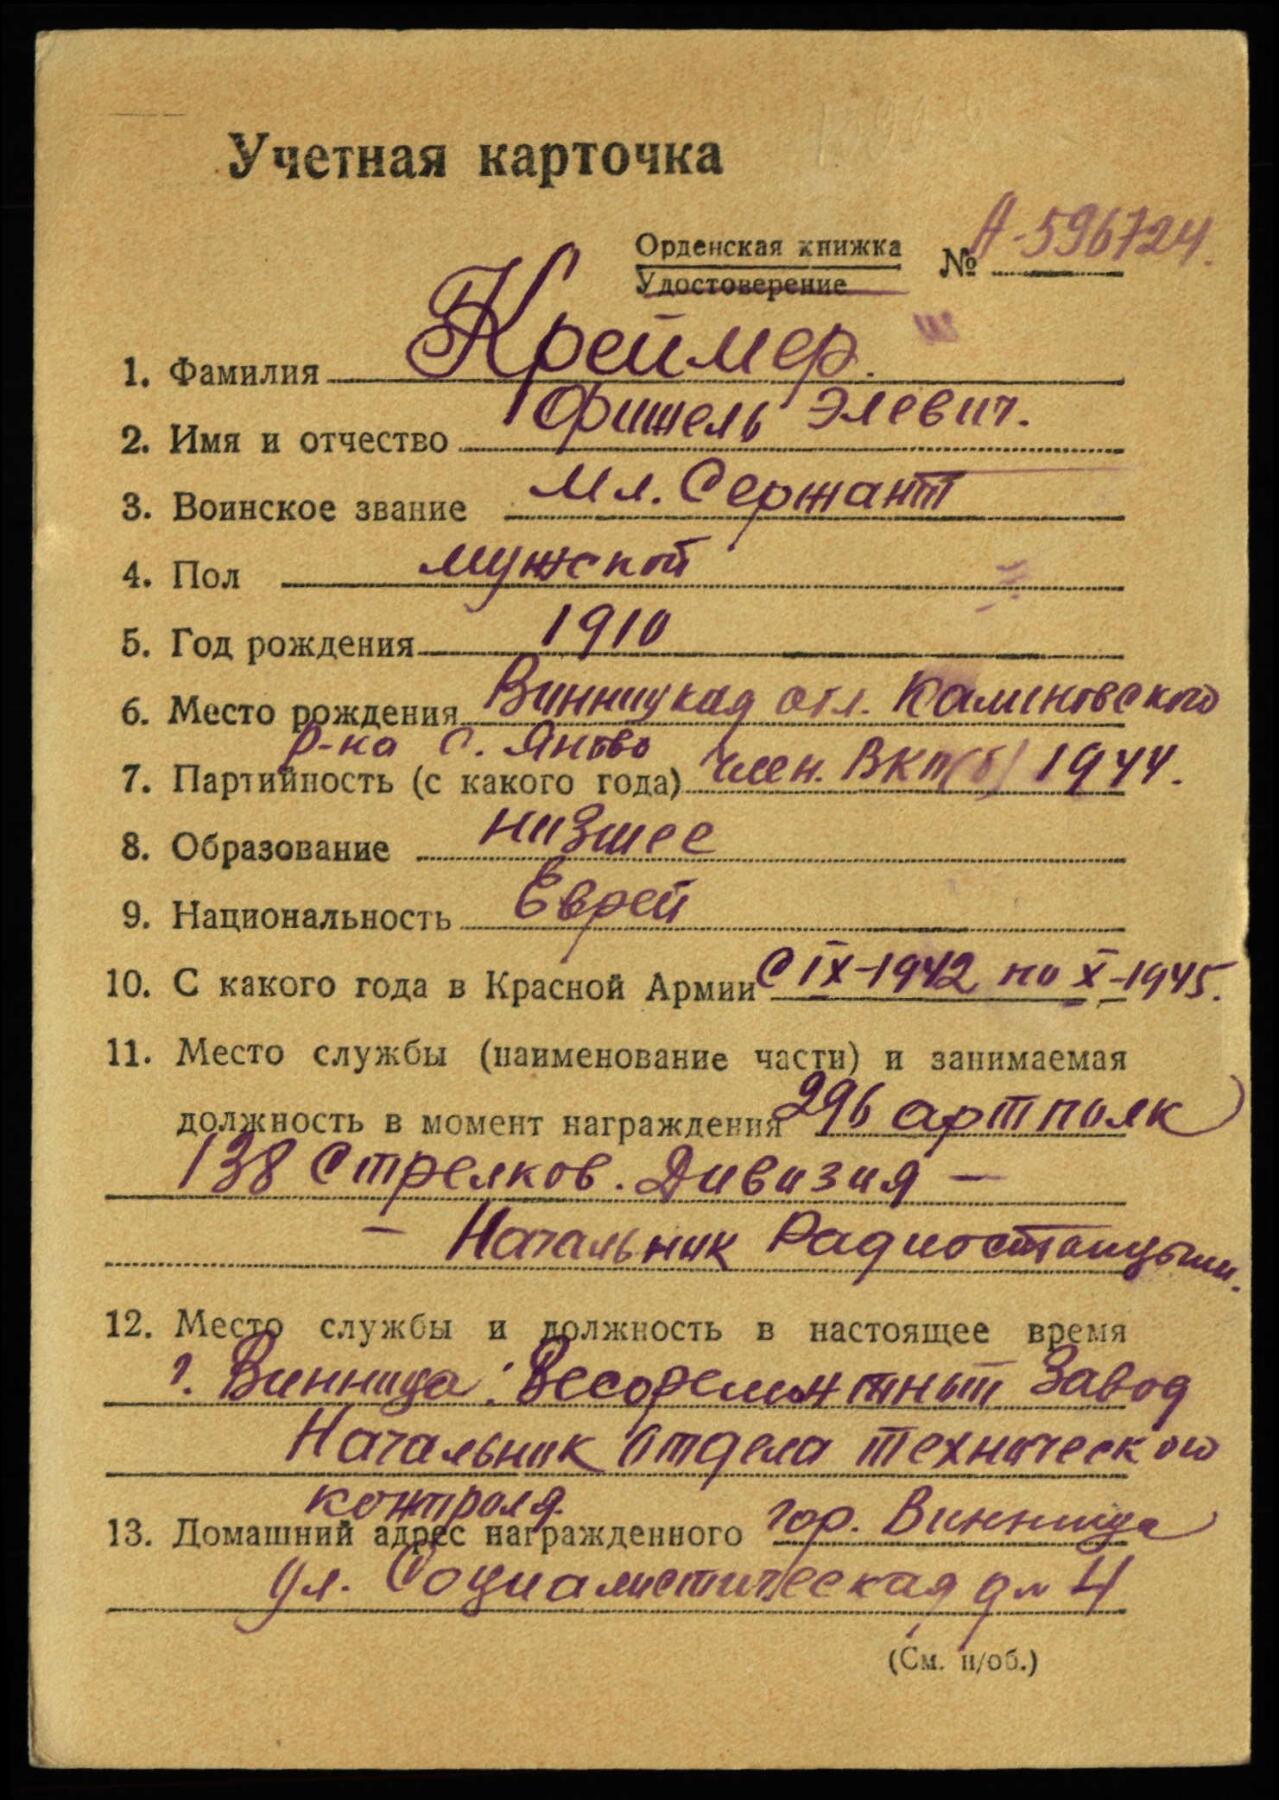 Учетная карточка
Орденская книжка
Удостоверение
№ А-596724.
1. Фамилия Креймер.
2. Имя и отчество Фишель Элевич.
3. Воинское звание Мл. Сержант
4. Пол мужской
5. Год рождения 1910
6. Место рождения Винницкая обл. Калиновского
р-на с. Яново
7. Партийность (с какого года) член. ВКП(б) 1944.
8. Образование низшее
9. Национальность Еврей
10. С какого года в Красной Армии С IX-1942 по X-1945.
11. Место службы (наименование части) и занимаемая
должность в момент награждения 296 артполк
138 Стрелков. Дивизия —
— Начальник Радиостанции.
12. Место службы и должность в настоящее время
г. Винница: Весоремонтный Завод
Начальник Отдела технического
контроля.
13. Домашний адрес награжденного гор. Винница
ул. Социалистическая д. 4
(См. н/об.)